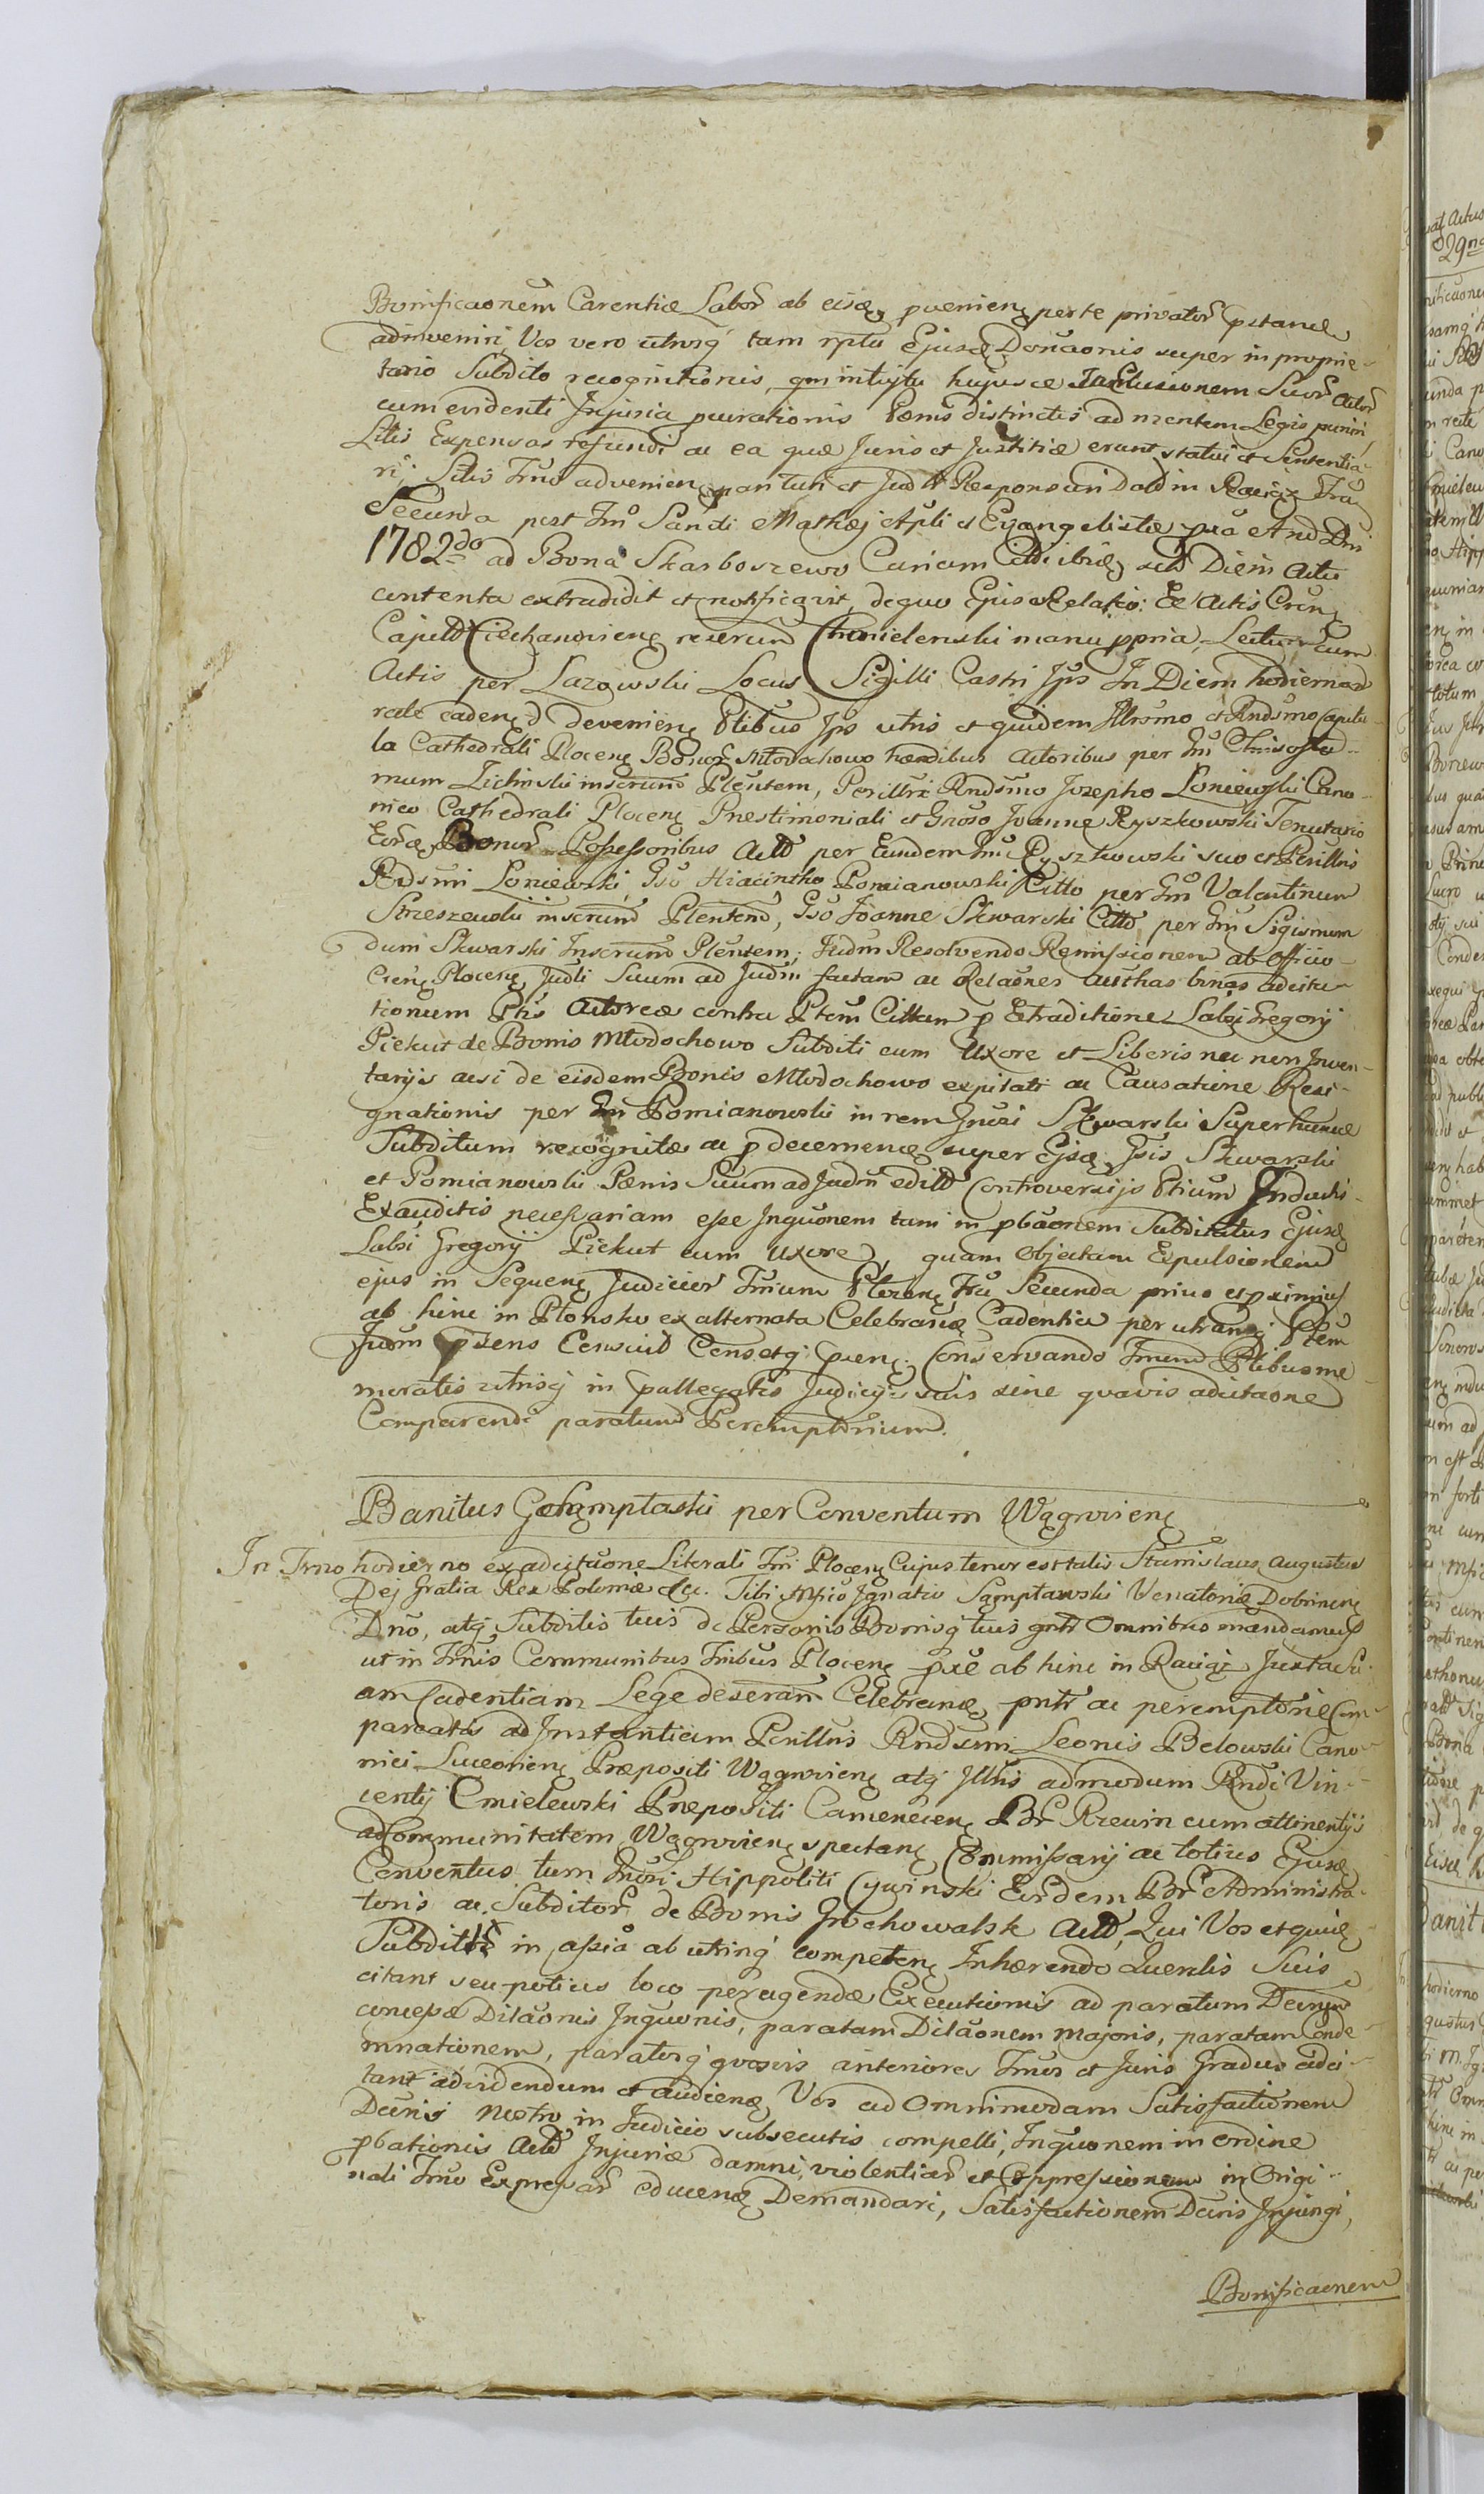 Bonificaonem Carentiæ Labor ab eisq, pvenien perte privator pstand
adinveniri, Vos vero utrosq tam rptu Ejusd Donaonis super in proprie-
tario Subdito recognitionis, qm intuitu hujusce Inclusionem Suor Actor
cum evidenti Injuria procurationis Pœnis distinctis ad mentem Legis puniri,
Litis Expensas refundi ac ea quæ Juris et Justitiæ erunt statui et Sententia-
ri, Sitis Trno advenien paritturi et Judtr Responsuri Datd in Raciąż Fra
Secunda post Fm Sancti Mathæj Apli et Evangelistæ pxa And Dni
1782do ad Bona Skarboszewo Curiam Cttdi ibid sub Diem Actu
contenta extradidit et notificavit, de quo Ejus Relatio: Ex Actis Cren
Capit Ciechanovien rescrum Chmielewski manu ppria, Lectum cum
Actis per Lazowski Locus Sigilli Castri Ips In Diem hodiernad
rale caden d devenien Ptibus Ips utris et quidem Illrsmo et Rndsmo Capitu-
la Cathedrali Plocen Bonor Młodochowo hærdibus Actoribus per Gm Chrisosto-
mum Zichinski inscrum Plentem, Perillri Rndsmo Jozepho Loniewski Cano-
nico Cathedrali Plocen Præstimoniali et Groso Joanne Ryszkowski Tenutario
Eord Bonor Possessoribus Actt per Eundem Gm Ryszkowski suo et Perillris
Rdsmi Loniewski, Gso Hiacintho Pomianowski Citto per Gm Valentinum
Strzeszewski inscrum Plentem, Gso Joanne Skwarski Citto per Gm Sigismun-
dum Skwarski Inscrum Plentem; Judm Resolvendo Remissionem ab Officio
Cren Plocen Judli Suum ad Judm factam ac Relaones aucthas binas adcita-
tionum Ptis Actoreæ contra Ptem Cittam p Extraditione Labsi Gregorij
Piekut de Bonis Młodochowo Subditi cum Uxore et Liberis nec non Inven-
tarijs acsi de eisdem Bonis Młodochowo expilati ac Causatione Resi-
gnationis per Gm Pomianowski in rem Gnrsi Skwarski Super hunce
Subditum recognitæ ac p decernen super Ejsd Gsis Skwarski
et Pomianowski Pœnis Suum ad Judm editd Controversijs Ptium Inducti-
Exauditis necessariam esse Inquonem tam in pbaonem Subditatus Ejusd
Labsi Gregorij Piekut cum Uxore, quam Objectam Expulsionem
ejus in Sequen Judicior Trnium Pterren Fra Secunda primo et pximius
ab hinc in Płonsko ex alternata Celebran Cadentia per utranq Ptem
Judm psens Censuit Censetq præn. Conservando Trnum Ptibus me-
moratis utrisq in pallegatis Judicijs suis sine quavis adcitaone
Comparendi paratum Peremptorium.
Banitus Gsłamptaski per Conventum Wągrovien
In Trno hodierno ex adcitaone Literali Tm Plocen Cujus tenor est talis Stanislaus Augustus
Dej Gratia Rex Poloniæ &c. Tibi Mfico Ignatio Sąmptawski Venatoriæ Dobrinen
Dno, atq Subditis tuis de Personis Bonisq tuis gntr Omnibus mandamus
ut in Trnis Communibus Tribus Plocen pxe ab hinc in Raciąż Juxta Su-
am Cadentiam Lege deseram Celebran pntr ac peremptorie Com-
pareatis ad Instantiam Perillris Rndsmi Leonis Belowski Cano-
nici Luceorien Præpositi Wągrovien atq Illris admodum Rndi Vin-
centij Cmielewski Præpositi Camenecen Br Rzewin cum attinentijs
ad Communitatem Wągrovien spectan Commissarij ac totius Ejusd
Conventus tum Gnrsi Hippoliti Cywinski Eordem Br Administra-
toris ac Subditor de Bonis Grochowalsk Actt, Qui Vos et quid
Subditos in assia ab utrinq competen Inhærendo Querelis Suis
citant seu potius loco peragendæ Executionis ad paratum Decrum
concessæ Dilaonis Inquonis, paratam Dilaonem Majoris, paratam Conde-
mnationem, paratosq quosvis anteriores Trnos et Juris Gradus adci-
tant ad videndum et audiend, Vos ad Omnimodam Satisfactionem
Decris Nostro in Judicio subsecutis compelli, Inquonem in ordine
pbationis Actt Injuriæ damni, violentiar et Oppressionum in Origi-
nali Trno Expressar educend Demandari, Satisfactionem Decris Injungi,
Bonificaonem